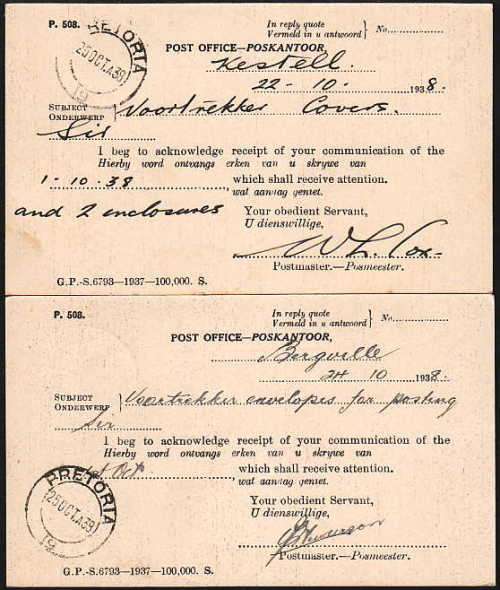 P. 508.
In reply quote
Vermeld in u antwoord } No.
POST OFFICE—POSKANTOOR,
PRETORIA
25 OCT. 38
19
Kestell.
22 - 10 - 1938.
SUBJECT
ONDERWERP } Voortrekker Covers.
Sir
I beg to acknowledge receipt of your communication of the
Hierby word ontvangs erken van u skrywe van
1 - 10 - 38, which shall receive attention.
wat aandag geniet.
and 2 enclosures
Your obedient Servant,
U dienswillige,
W L Cox.
Postmaster.—Posmeester.
G.P.-S.6793—1937—100,000. S.
P. 508.
In reply quote
Vermeld in u antwoord } No.
POST OFFICE—POSKANTOOR,
Bergville
24 10 1938.
SUBJECT
ONDERWERP } Voortrekker envelopes for posting
Sir
I beg to acknowledge receipt of your communication of the
Hierby word ontvangs erken van u skrywe van
1st Oct, which shall receive attention.
wat aandag geniet.
PRETORIA
25 OCT. 38
19
Your obedient Servant,
U dienswillige,
Postmaster.—Posmeester.
G.P.-S.6793—1937—100,000. S.